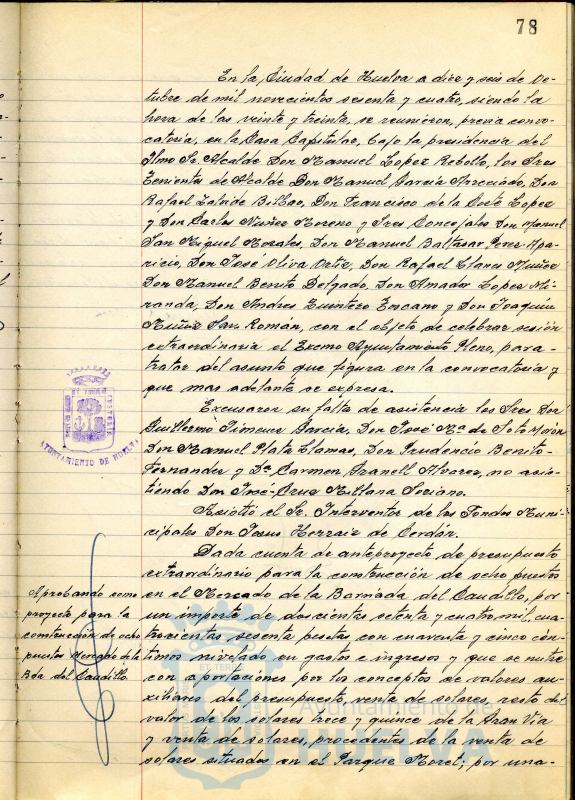 78
En la Ciudad de Huelva a diez y seis de Oc-
tubre de mil novecientos sesenta y cuatro, siendo la
hora de las veinte y treinta, se reunieron, previa convo-
catoria, en la Casa Capitular, bajo la presidencia del
Ilmo Sr. Alcalde Don Manuel Lopez Rebollo, los Sres
Tenientes de Alcalde Don Manuel García Arreciado, Don
Rafael Zalvide Bilbao, Don Francisco de la Corte Lopez
y Don Carlos Nuñez Moreno y Sres Concejales Don Manuel
San Miguel Morales, Don Manuel Baltasar Perez Apa-
ricio, Don José Oliva Ortiz, Don Rafael Llanes Muñoz
Don Manuel Benito Delgado, Don Amador Lopez Mi-
randa, Don Andres Quintero Toscano y Don Joaquin
Muñiz San Román, con el objeto de celebrar sesión
extraordinaria el Excmo Ayuntamiento Pleno, para
tratar del asunto que figura en la convocatoria y
que mas adelante se expresa.
Excusaron su falta de asistencia los Sres Don
Guillermo Jimenez García, Don José Mª de Soto Morón
Don Manuel Plata Llamas, Don Prudencio Benito
Fernandez y Dª Carmen Granell Alvarez, no asis-
tiendo Don José Cruz Millana Soriano.
Asistió el Sr. Interventor de los Fondos Muni-
cipales Don Jesus Herraiz de Cerdán.
Dada cuenta de anteproyecto de presupuesto
extraordinario para la construcción de ocho puestos
en el Mercado de la Barriada del Caudillo, por
un importe de doscientas setenta y cuatro mil, cua-
trocientas sesenta pesetas con cuarenta y cinco cén-
timos nivelado en gastos e ingresos y que se nutre
con aportaciones por los conceptos de valores au-
xiliares del presupuesto, venta de solares, resto del
valor de los solares trece y quince de la Gran Via
y venta de solares, procedentes de la venta de
solares situados en el Parque Moret; por una-
AYUNTAMIENTO DE HUELVA
Aprobando como
proyecto para la
construcción de ocho
puestos Mercado de la
Bda. del Caudillo
Ayuntamiento de
HUELVA